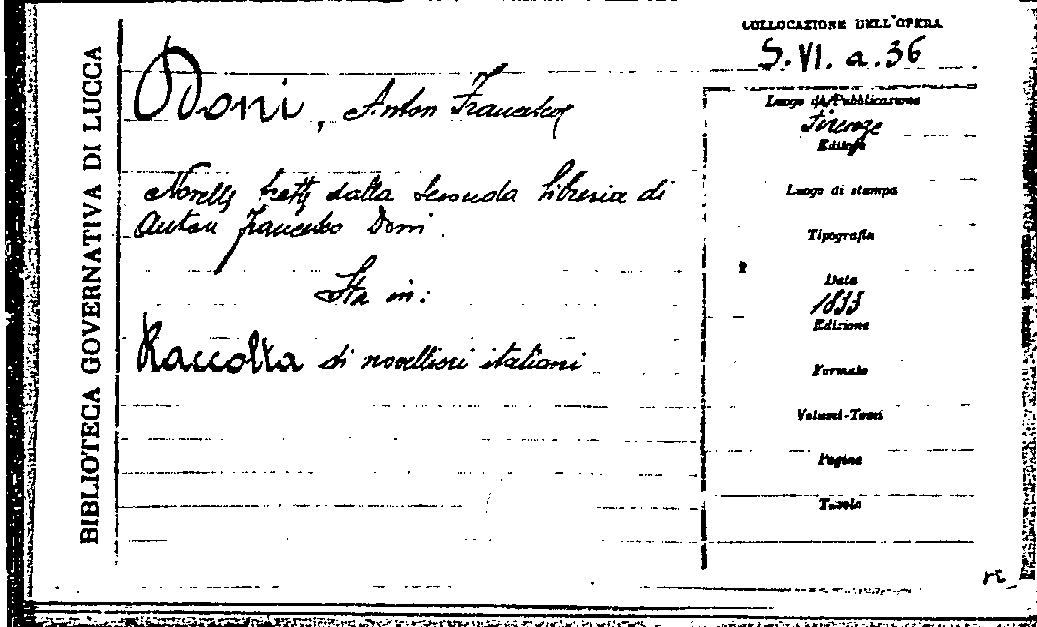 BIBLIOTECA GOVERNATIVA DI LUCCA
COLLOCAZIONE DELL'OPERA
S. VI. a. 36
Doni, Anton Francesco
Novelle tratte dalla seconda libreria di
Anton Francesco Doni.
Sta in:
Raccolta di novellieri italiani
Luogo di Pubblicazione
Firenze
Editore
Luogo di stampa
Tipografia
Data
1833
Edizione
Formato
Volumi-Tomi
Pagine
Tavole